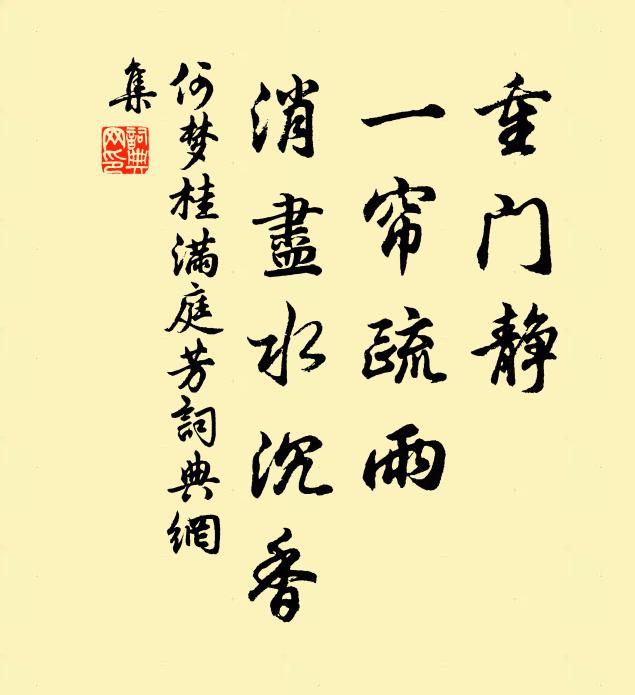 重门静
一帘疏雨
消盡水沉香
何梦桂满庭芳詞典網
集
詞典
网印